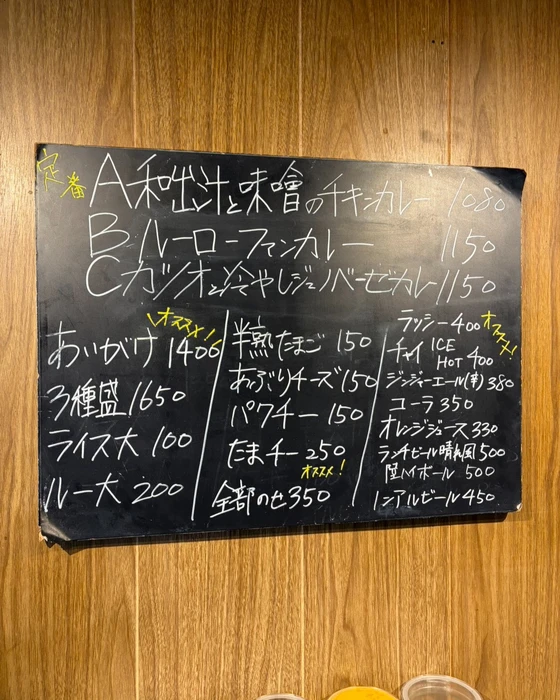 定番
A 和出汁と味噌のチキンカレー 1080
B ルーローファンカレー 1150
C カツオと冷やしジェノベーゼカレー 1150
オススメ!
あいがけ 1400
3種盛 1650
ライス大 100
ルー大 200
半熟たまご 150
あぶりチーズ 150
パクチー 150
たまチー 250
オススメ!
全部のせ 350
ラッシー 400
オススメ!
チャイ ICE
HOT 400
ジンジャーエール(辛) 380
コーラ 350
オレンジジュース 330
ランチビール晴れ風 500
陸ハイボール 500
ノンアルビール 450